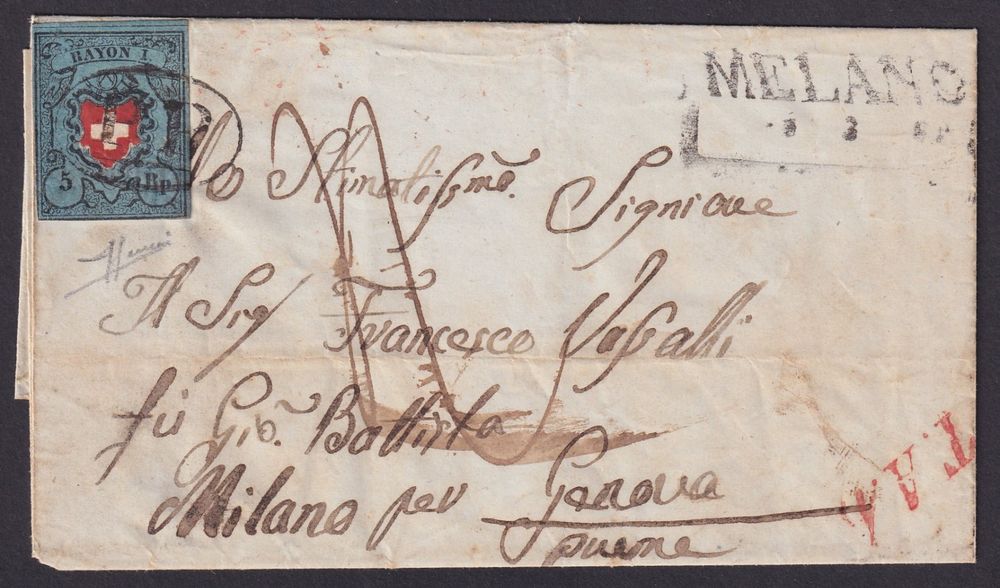 RAYON I
5 Rp
MELANO
Allo Stimatissmo. Signiore
Il Sig Francesco Vassalli
fù Gio. Battista
Milano per Genova